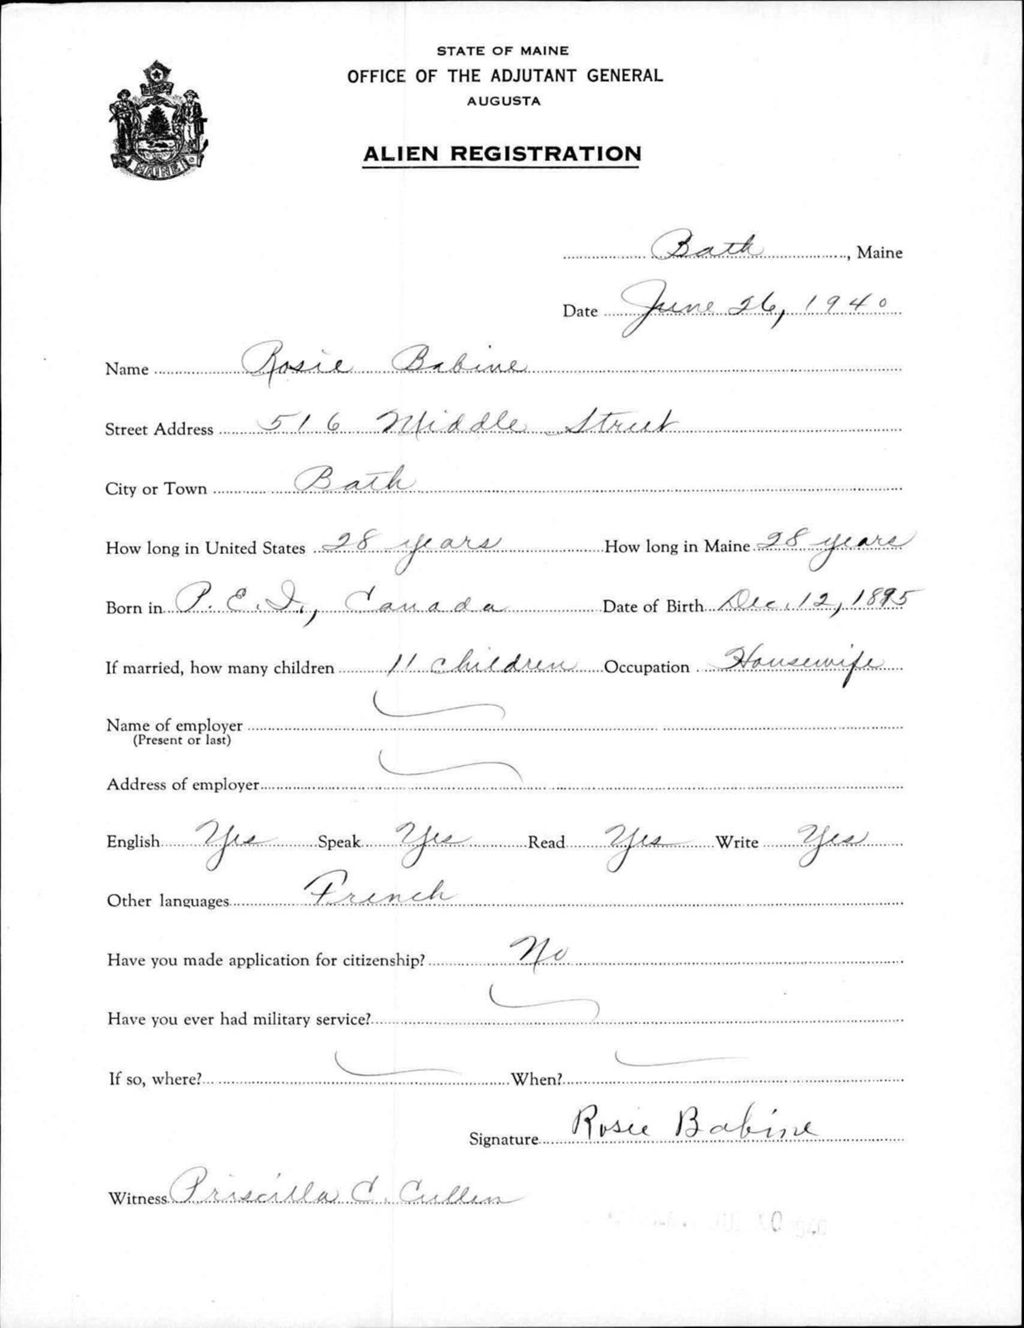 STATE OF MAINE
OFFICE OF THE ADJUTANT GENERAL
AUGUSTA
ALIEN REGISTRATION
MAINE
Bath, Maine
Date June 26, 1940
Name Rosie Babine
Street Address 516 Middle Street
City or Town Bath
How long in United States 28 years How long in Maine 28 years
Born in P. E. I., Canada Date of Birth Dec. 12, 1895
If married, how many children 11 children Occupation Housewife
Name of employer
(Present or last)
Address of employer
English Yes Speak Yes Read Yes Write Yes
Other languages French
Have you made application for citizenship? No
Have you ever had military service?
If so, where? When?
Signature Rosie Babine
Witness Priscilla C. Cullen